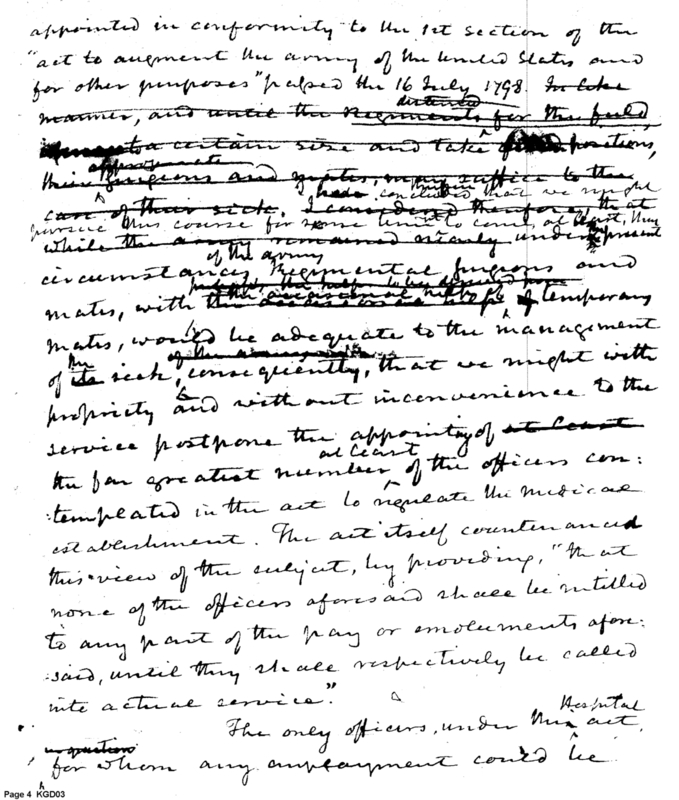 appointed in conformity to the 1st section of the
"act to augment the army of the United States and
for other purposes" passed the 16 July 1798. In like
detached
manner, and until the Regiments for the field,
a certain size and take positions,
approximate
their surgeons and mates, may suffice to the
had concluded that we might
care of their sick. I considered therefore, that
pursue this course for some time to come, at least, they
while the army remained nearly under present
of the army
circumstances, Regimental Surgeons and
mates, with the occasional help of temporary
mates, would be adequate to the management
the
of its sick, consequently, that we might with
propriety and without inconvenience to the
service postpone the appointg of at least
at least
the far greatest number of the officers con:
:templated in the act to regulate the medical
establishment. The act itself countenanced
this view of the subject, by providing, "that
none of the officers aforesaid shall be intitled
to any part of the pay or emoluments afore:
:said, until they shall respectively be called
into actual service."
Hospital
The only officers, under this act,
in question
for whom any employment could be
Page 4 KGD03